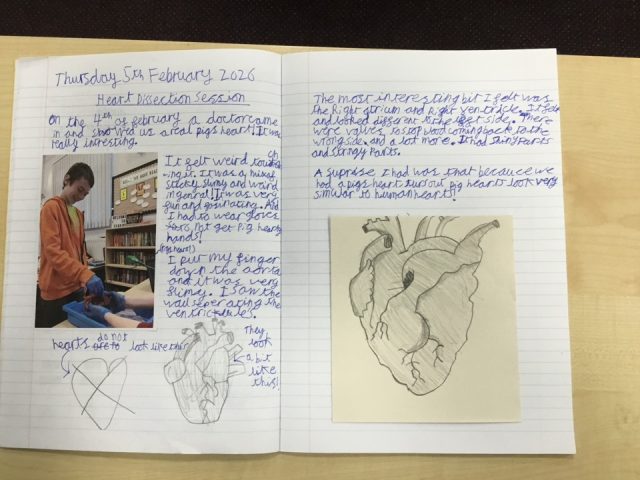 Thursday 5th February 2026
Heart Dissection Session
On the 4th of february a doctor came
in and showed us a real pigs heart! It was
really interesting.
It felt weird touch
ing it. It was a mix of
sticky slimy and weird
in general! It was very
fun and fascinating. And
I had to wear gloves
to not get pig hearty
hands!
(pigs heart)
I put my finger
down the aorta
and it was very
slimy. I saw the
wall seperating the
ventricules.
hearts do not look like this
They
look
a bit
like
this!
The most interesting bit I felt was
the Right atrium and right ventricle. It felt
and looked different to the left side. There
were valves, to stop blood coming back to the
wrong side and a lot more. It had shiny Parts
and stringy Parts.
A suprise I had was that because we
had a pigs heart turns out pig hearts look very
similar to human hearts!